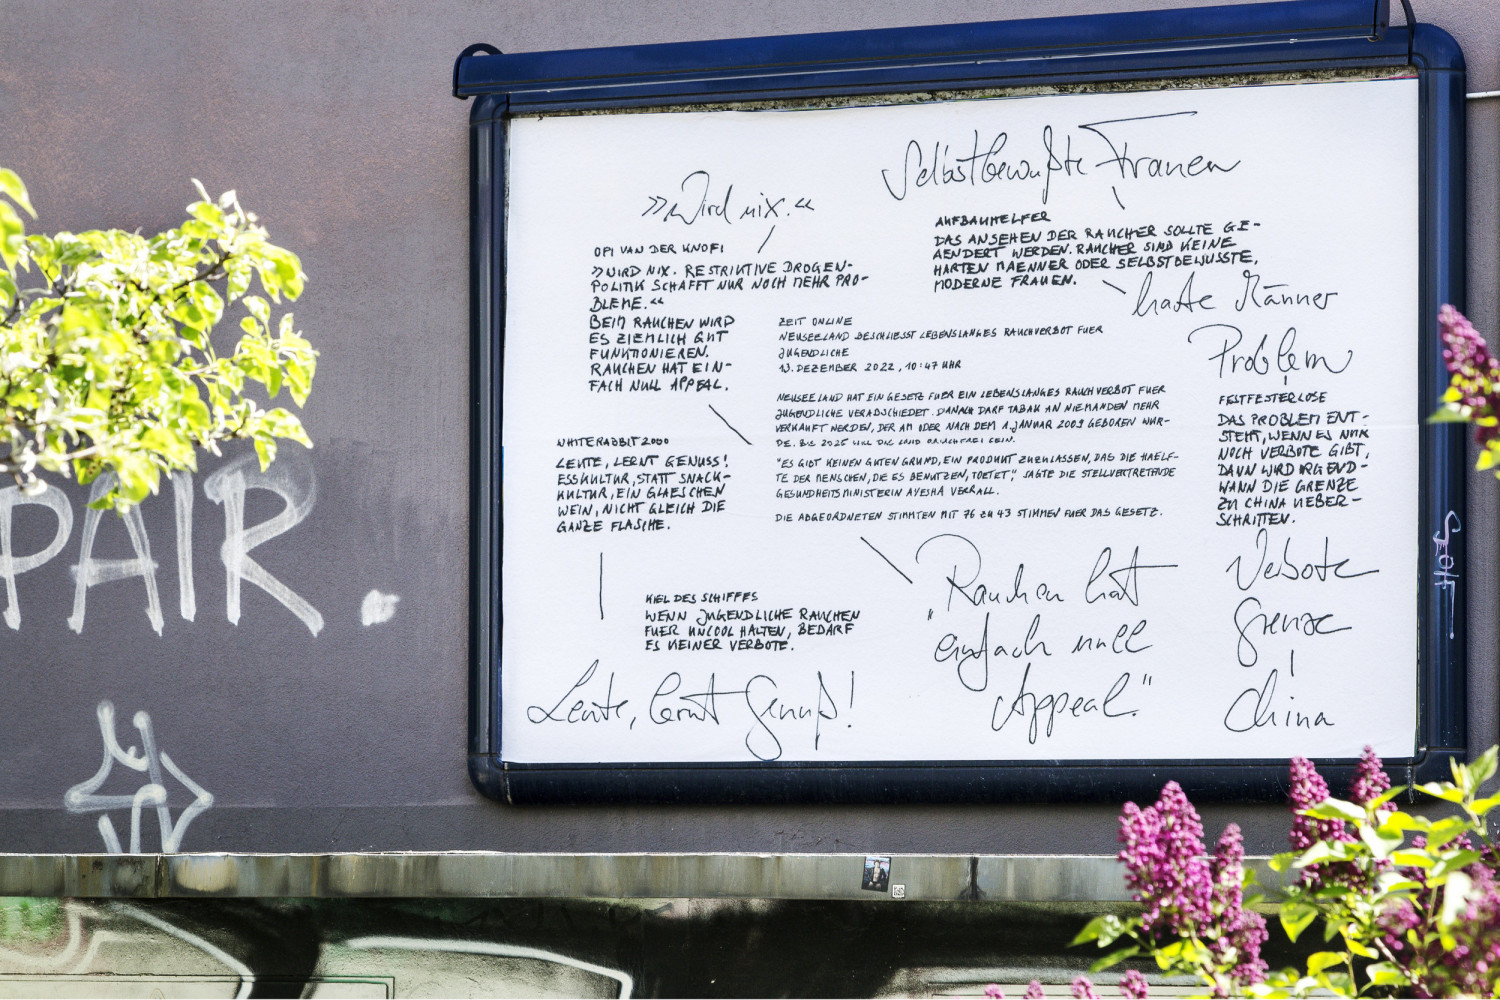 PAIR.
»Wird nix.«
OPI VAN DER KNOFI
»WIRD NIX. RESTRIKTIVE DROGEN-
POLITIK SCHAFFT NUR NOCH MEHR PRO-
BLEME.«
BEIM RAUCHEN WIRD
ES ZIEMLICH GUT
FUNKTIONIEREN.
RAUCHEN HAT EIN-
FACH NULL APPEAL.
WHITERABBIT2000
LEUTE, LERNT GENUSS!
ESSKULTUR, STATT SNACK-
KULTUR, EIN GLAESCHEN
WEIN, NICHT GLEICH DIE
GANZE FLASCHE.
KIEL DES SCHIFFFS
WENN JUGENDLICHE RAUCHEN
FUER UNCOOL HALTEN, BEDARF
ES KEINER VERBOTE.
Leute, lernt Genuß!
Selbstbewußte Frauen
AUFBAUHELFER
DAS ANSEHEN DER RAUCHER SOLLTE GE-
AENDERT WERDEN. RAUCHER SIND KEINE
HARTEN MAENNER ODER SELBSTBEWUSSTE,
MODERNE FRAUEN.
harte Männer
ZEIT ONLINE
NEUSEELAND BESCHLIESST LEBENSLANGES RAUCHVERBOT FUER
JUGENDLICHE
13. DEZEMBER 2022, 10:47 UHR
NEUSEELAND HAT EIN GESETZ FUER EIN LEBENSLANGES RAUCHVERBOT FUER
JUGENDLICHE VERABSCHIEDET. DANACH DARF TABAK AN NIEMANDEN MEHR
VERKAUFT WERDEN, DER AM ODER NACH DEM 1. JANUAR 2009 GEBOREN WUR-
DE. BIS 2025 WILL DAS LAND RAUCHFREI SEIN.
"ES GIBT KEINEN GUTEN GRUND, EIN PRODUKT ZUZULASSEN, DAS DIE HAELF-
TE DER MENSCHEN, DIE ES BENUTZEN, TOETET", SAGTE DIE STELLVERTRETENDE
GESUNDHEITSMINISTERIN AYESHA VERRALL.
DIE ABGEORDNETEN STIMMTEN MIT 76 ZU 43 STIMMEN FUER DAS GESETZ.
"Rauchen hat
einfach null
Appeal."
Problem
FESTFESTERLOSE
DAS PROBLEM ENT-
STEHT, WENN ES NUR
NOCH VERBOTE GIBT,
DANN WIRD IRGEND-
WANN DIE GRENZE
ZU CHINA UEBER-
SCHRITTEN.
Verbote
Grenze
China